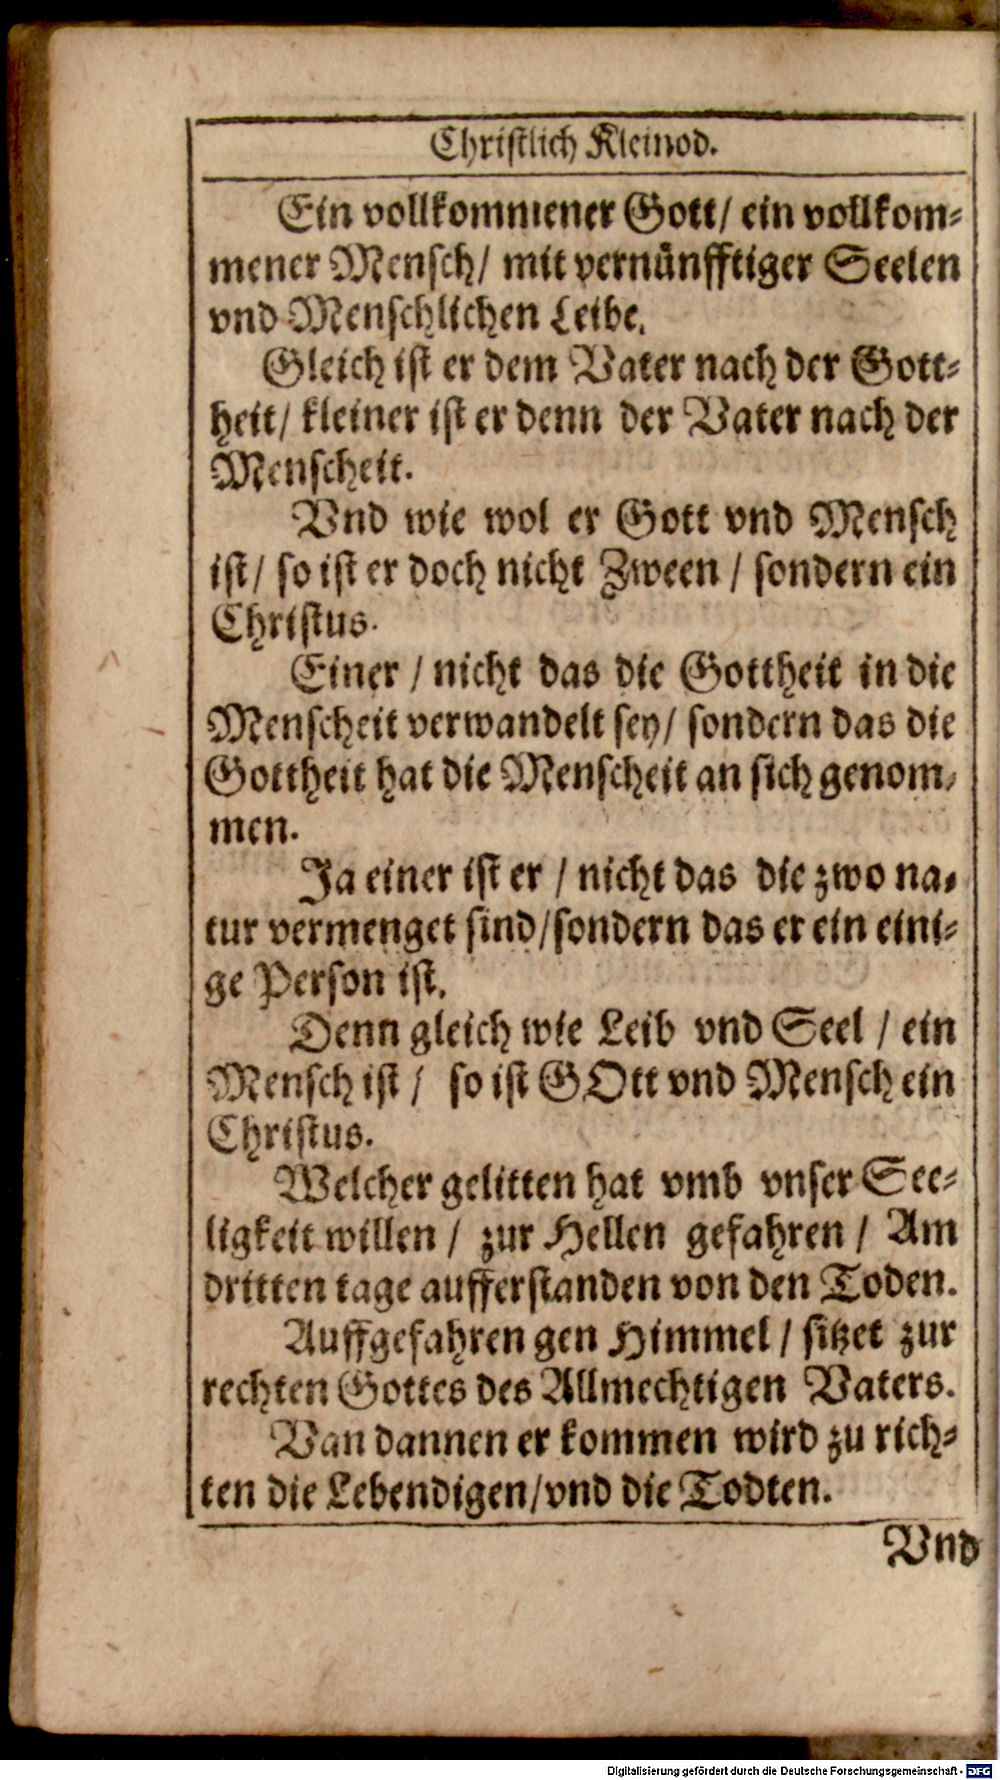 Christlich Kleinod.
Ein vollkommener Gott/ ein vollkom-
mener Mensch/ mit vernuͤnfftiger Seelen
vnd Menschlichen Leibe.
Gleich ist er dem Vater nach der Gott-
heit/ kleiner ist er denn der Vater nach der
Menscheit.
Vnd wie wol er Gott vnd Mensch
ist/ so ist er doch nicht Zween / sondern ein
Christus.
Einer / nicht das die Gottheit in die
Menscheit verwandelt sey/ sondern das die
Gottheit hat die Menscheit an sich genom-
men.
Ja einer ist er / nicht das die zwo na-
tur vermenget sind/sondern das er ein eini-
ge Person ist.
Denn gleich wie Leib vnd Seel / ein
Mensch ist / so ist GOtt vnd Mensch ein
Christus.
Welcher gelitten hat vmb vnser See-
ligkeit willen / zur Hellen gefahren / Am
dritten tage aufferstanden von den Toden.
Auffgefahren gen Himmel / sitzet zur
rechten Gottes des Allmechtigen Vaters.
Van dannen er kommen wird zu rich-
ten die Lebendigen/vnd die Todten.
Vnd
Digitalisierung gefördert durch die Deutsche Forschungsgemeinschaft - DFG